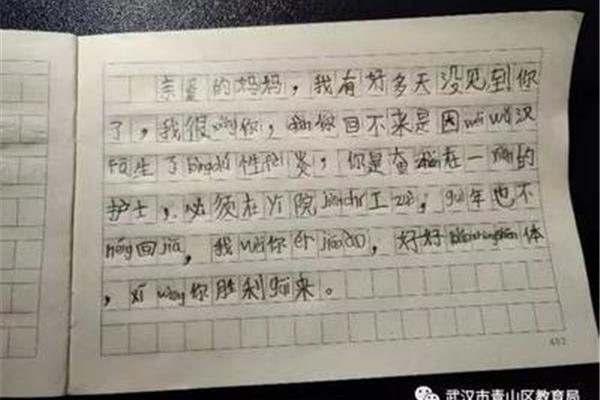 亲爱的妈妈，我有好多天没见到你
了，我很xiǎng你，你回不来是因wèi wǔ汉
发生了性肺炎，你是奋战在一xiàn的
护士，必须在yī院jiānchí工zuò，guò年也不
néng回jiā，我wèi你jiāo ào，好好体
，xī wàng你胜利guī来。
462
武汉市青山区教育局